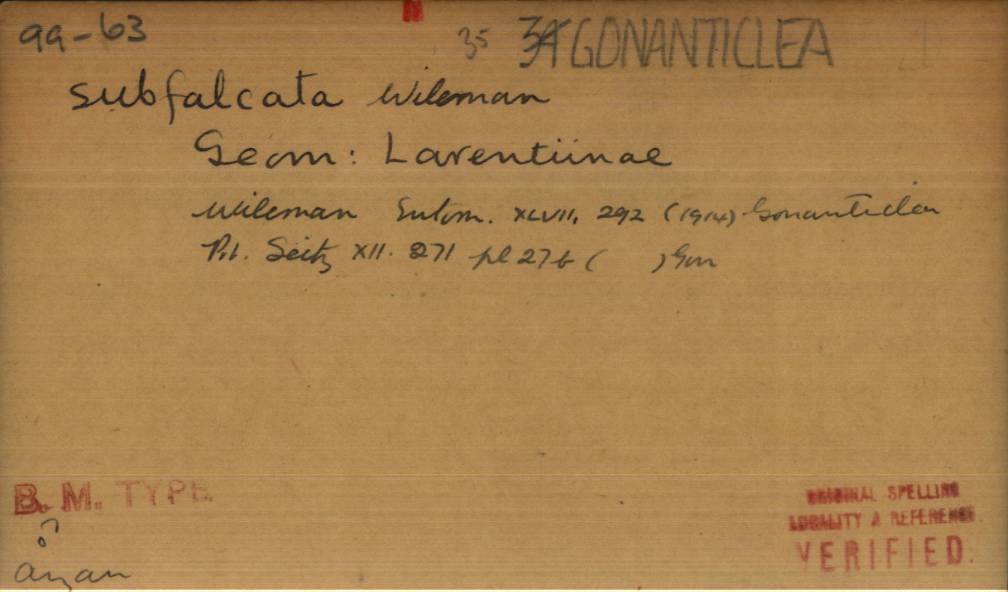 99-63
35 34 GONANTICLEA
subfalcata Wileman
Geom: Larentiinae
Wileman Entom. XLVII, 292 (1914) Gonanticlea
Pr. Seitz XII. 271 pl 27b ( ) Gon
B. M. TYPE.
♂
ORIGINAL SPELLING
LOCALITY & REFERENCE
VERIFIED.